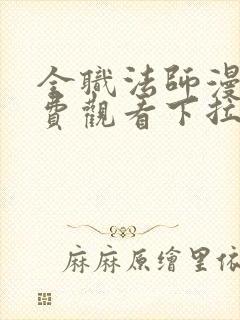 全職法師漫
費觀看下拉
麻麻原繪里依